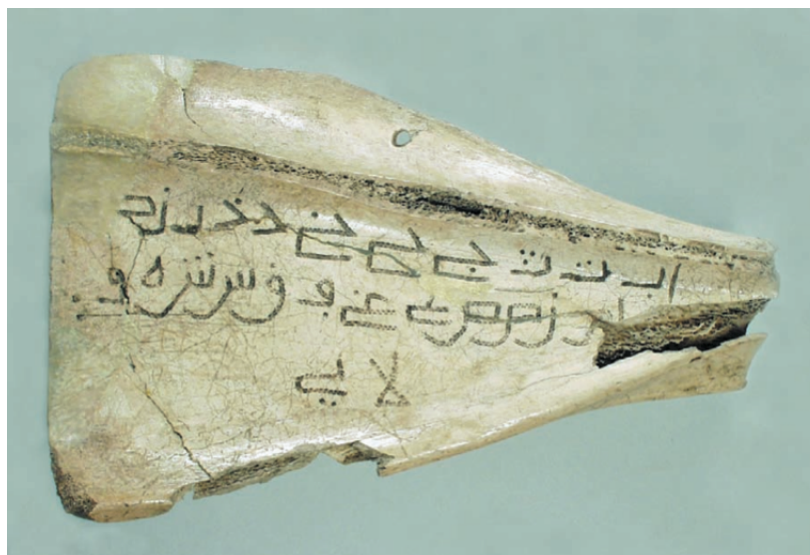 ا ب ت ث ج ح خ د ذ ر ز
ن ص ض ع غ ف ق س ش ه و
لا ي